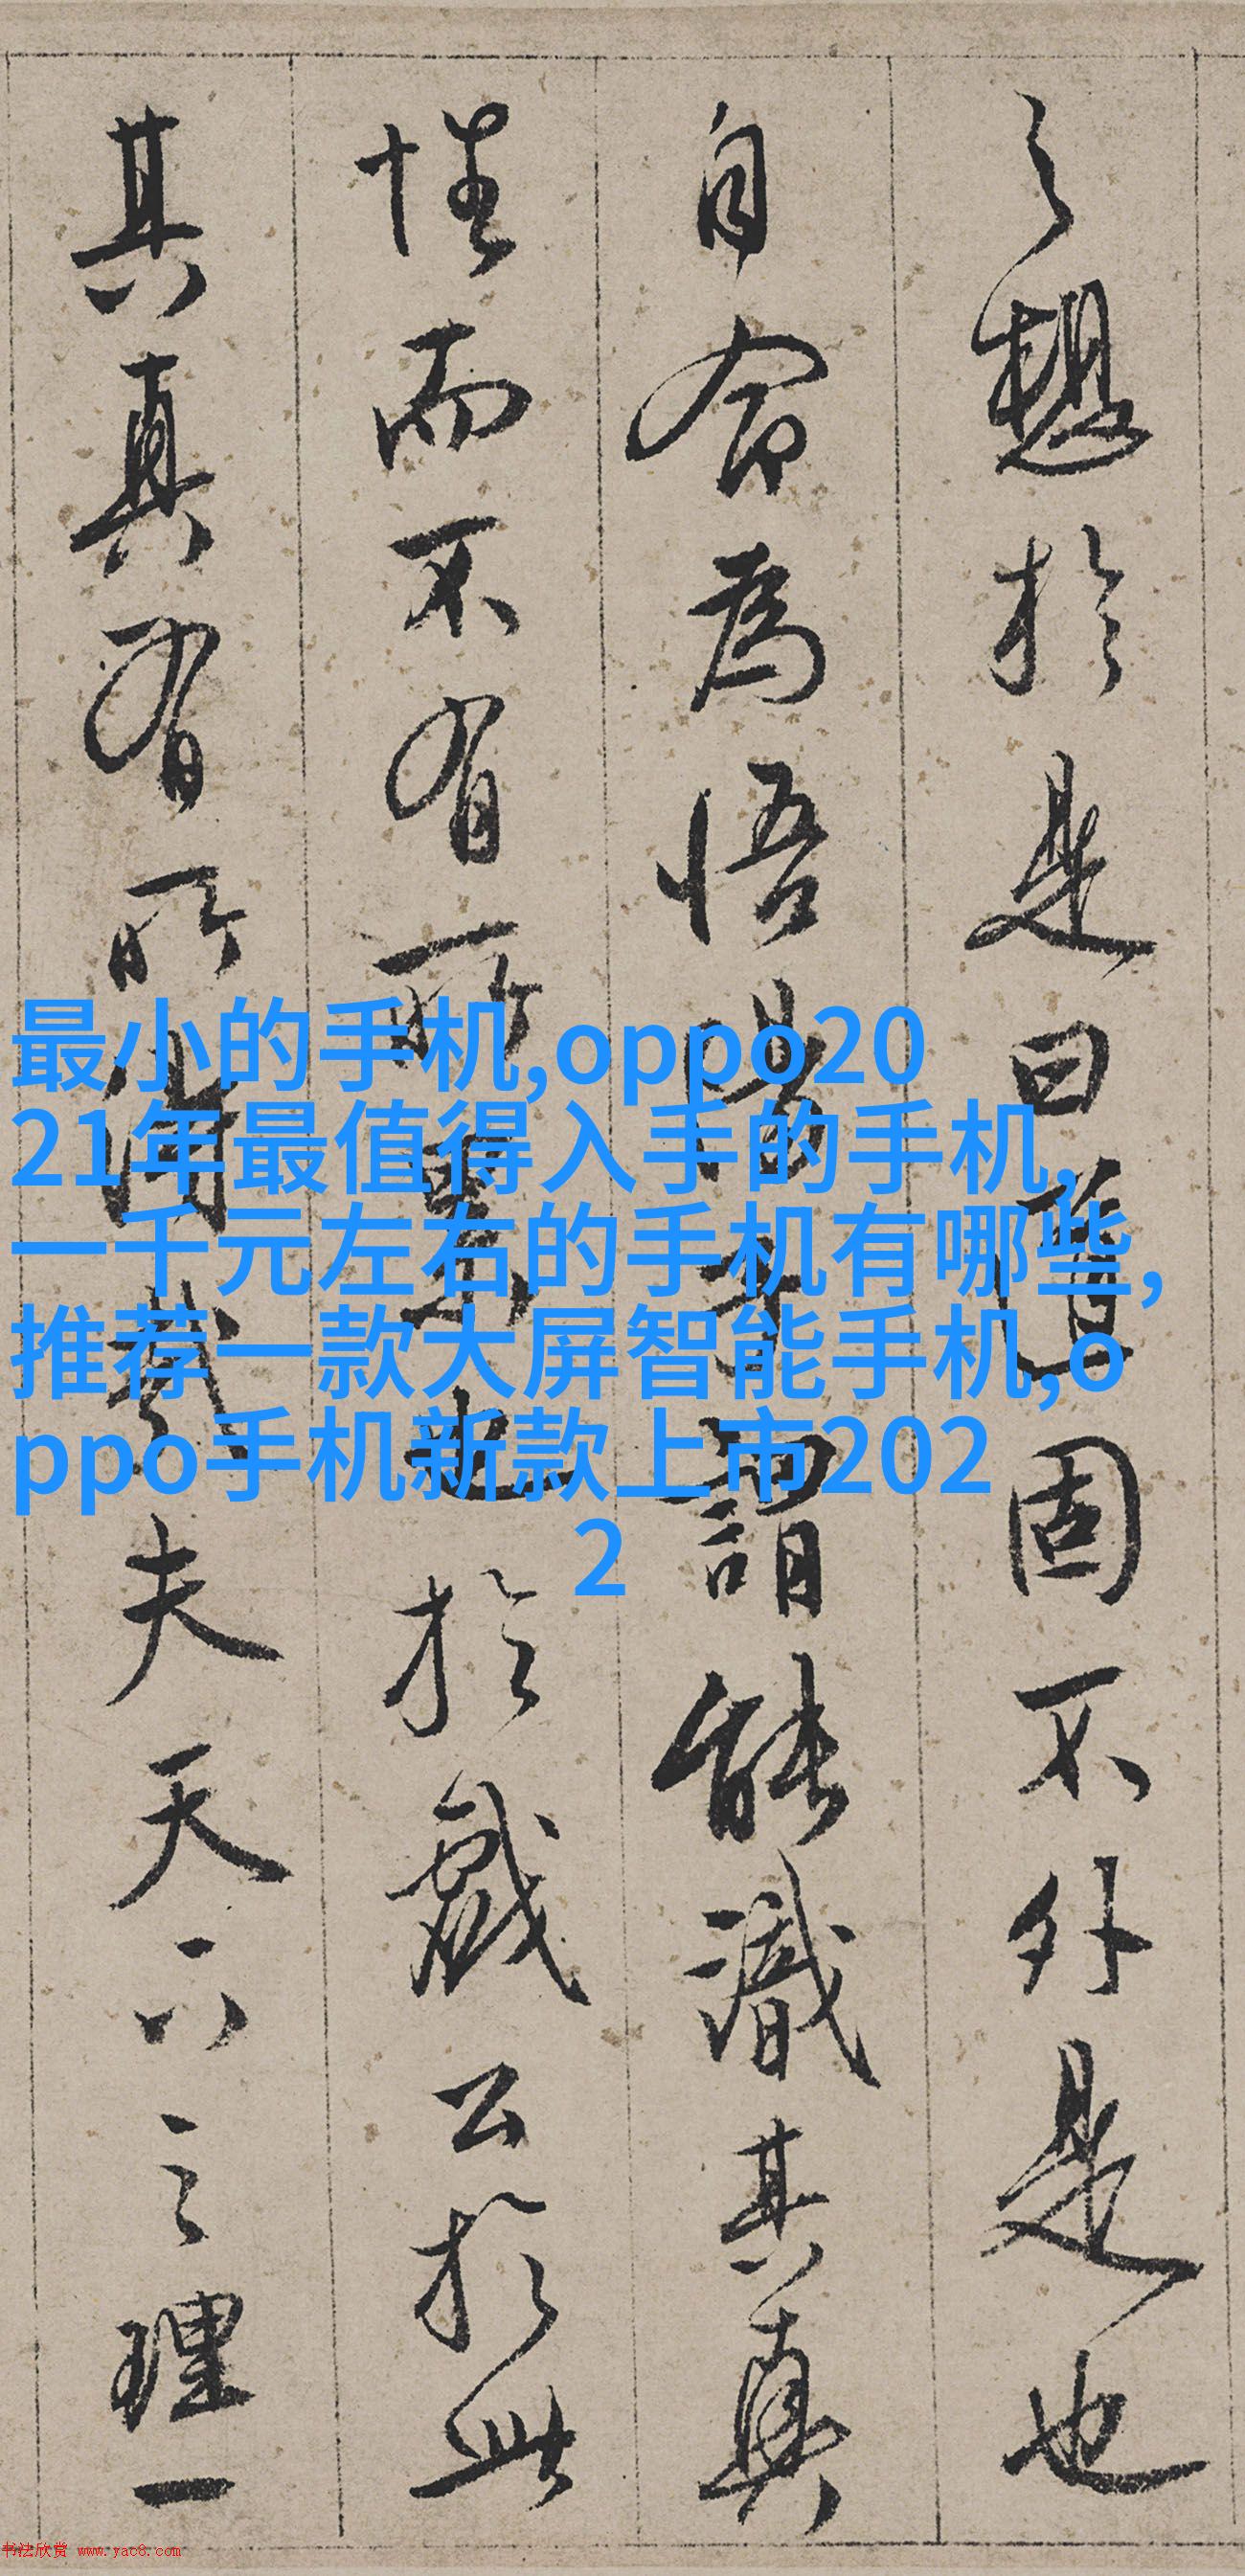 之想於是曰 固不外是也
自命為悟 謂能識其真
性而不有所 於戲公於此
其真有所 夫天下之理一
最小的手机,oppo20
21年最值得入手的手机,
一千元左右的手机有哪些,
推荐一款大屏智能手机,o
ppo手机新款上市202
2
书法欣赏 www.yac8.com